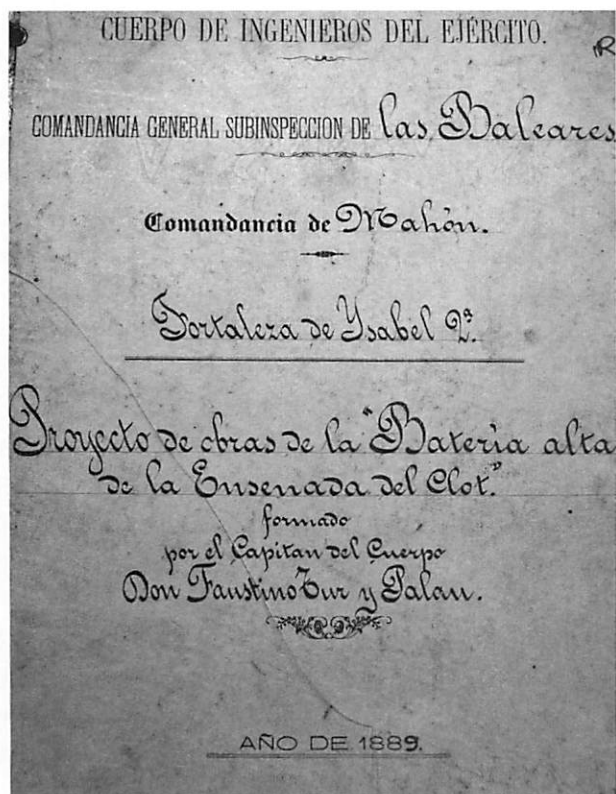 CUERPO DE INGENIEROS DEL EJÉRCITO.
R
COMANDANCIA GENERAL SUBINSPECCION DE las Baleares
Comandancia de Mahón.
Fortaleza de Ysabel 2ª.
Proyecto de obras de la "Batería alta
de la Ensenada del Clot."
formado
por el Capitan del Cuerpo
Don Faustino Tur y Palau.
AÑO DE 1889.